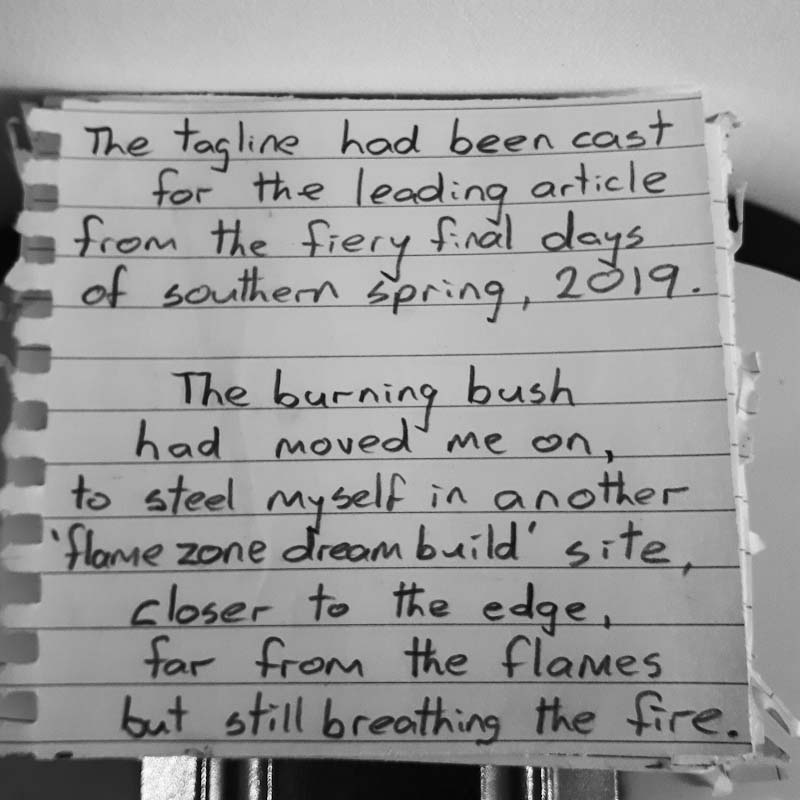 The tagline had been cast
for the leading article
from the fiery final days
of southern spring, 2019.
The burning bush
had moved me on,
to steel myself in another
'flame zone dream build' site,
closer to the edge,
far from the flames
but still breathing the fire.